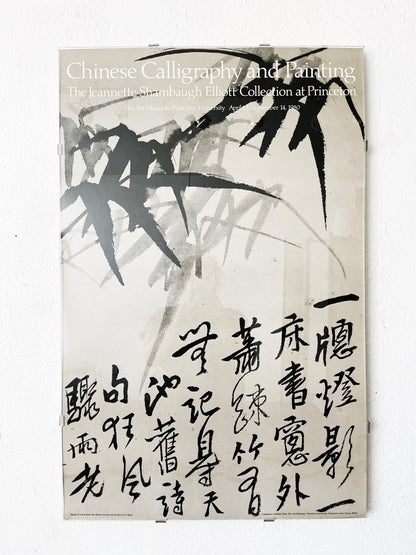 Chinese Calligraphy and Painting
The Jeannette Shambaugh Elliott Collection at Princeton
The Art Museum Princeton University April September 14, 1980
一牕燈影一
床書窻外
蕭疎竹有
無記得天
池舊詩
句狂風
驟雨老